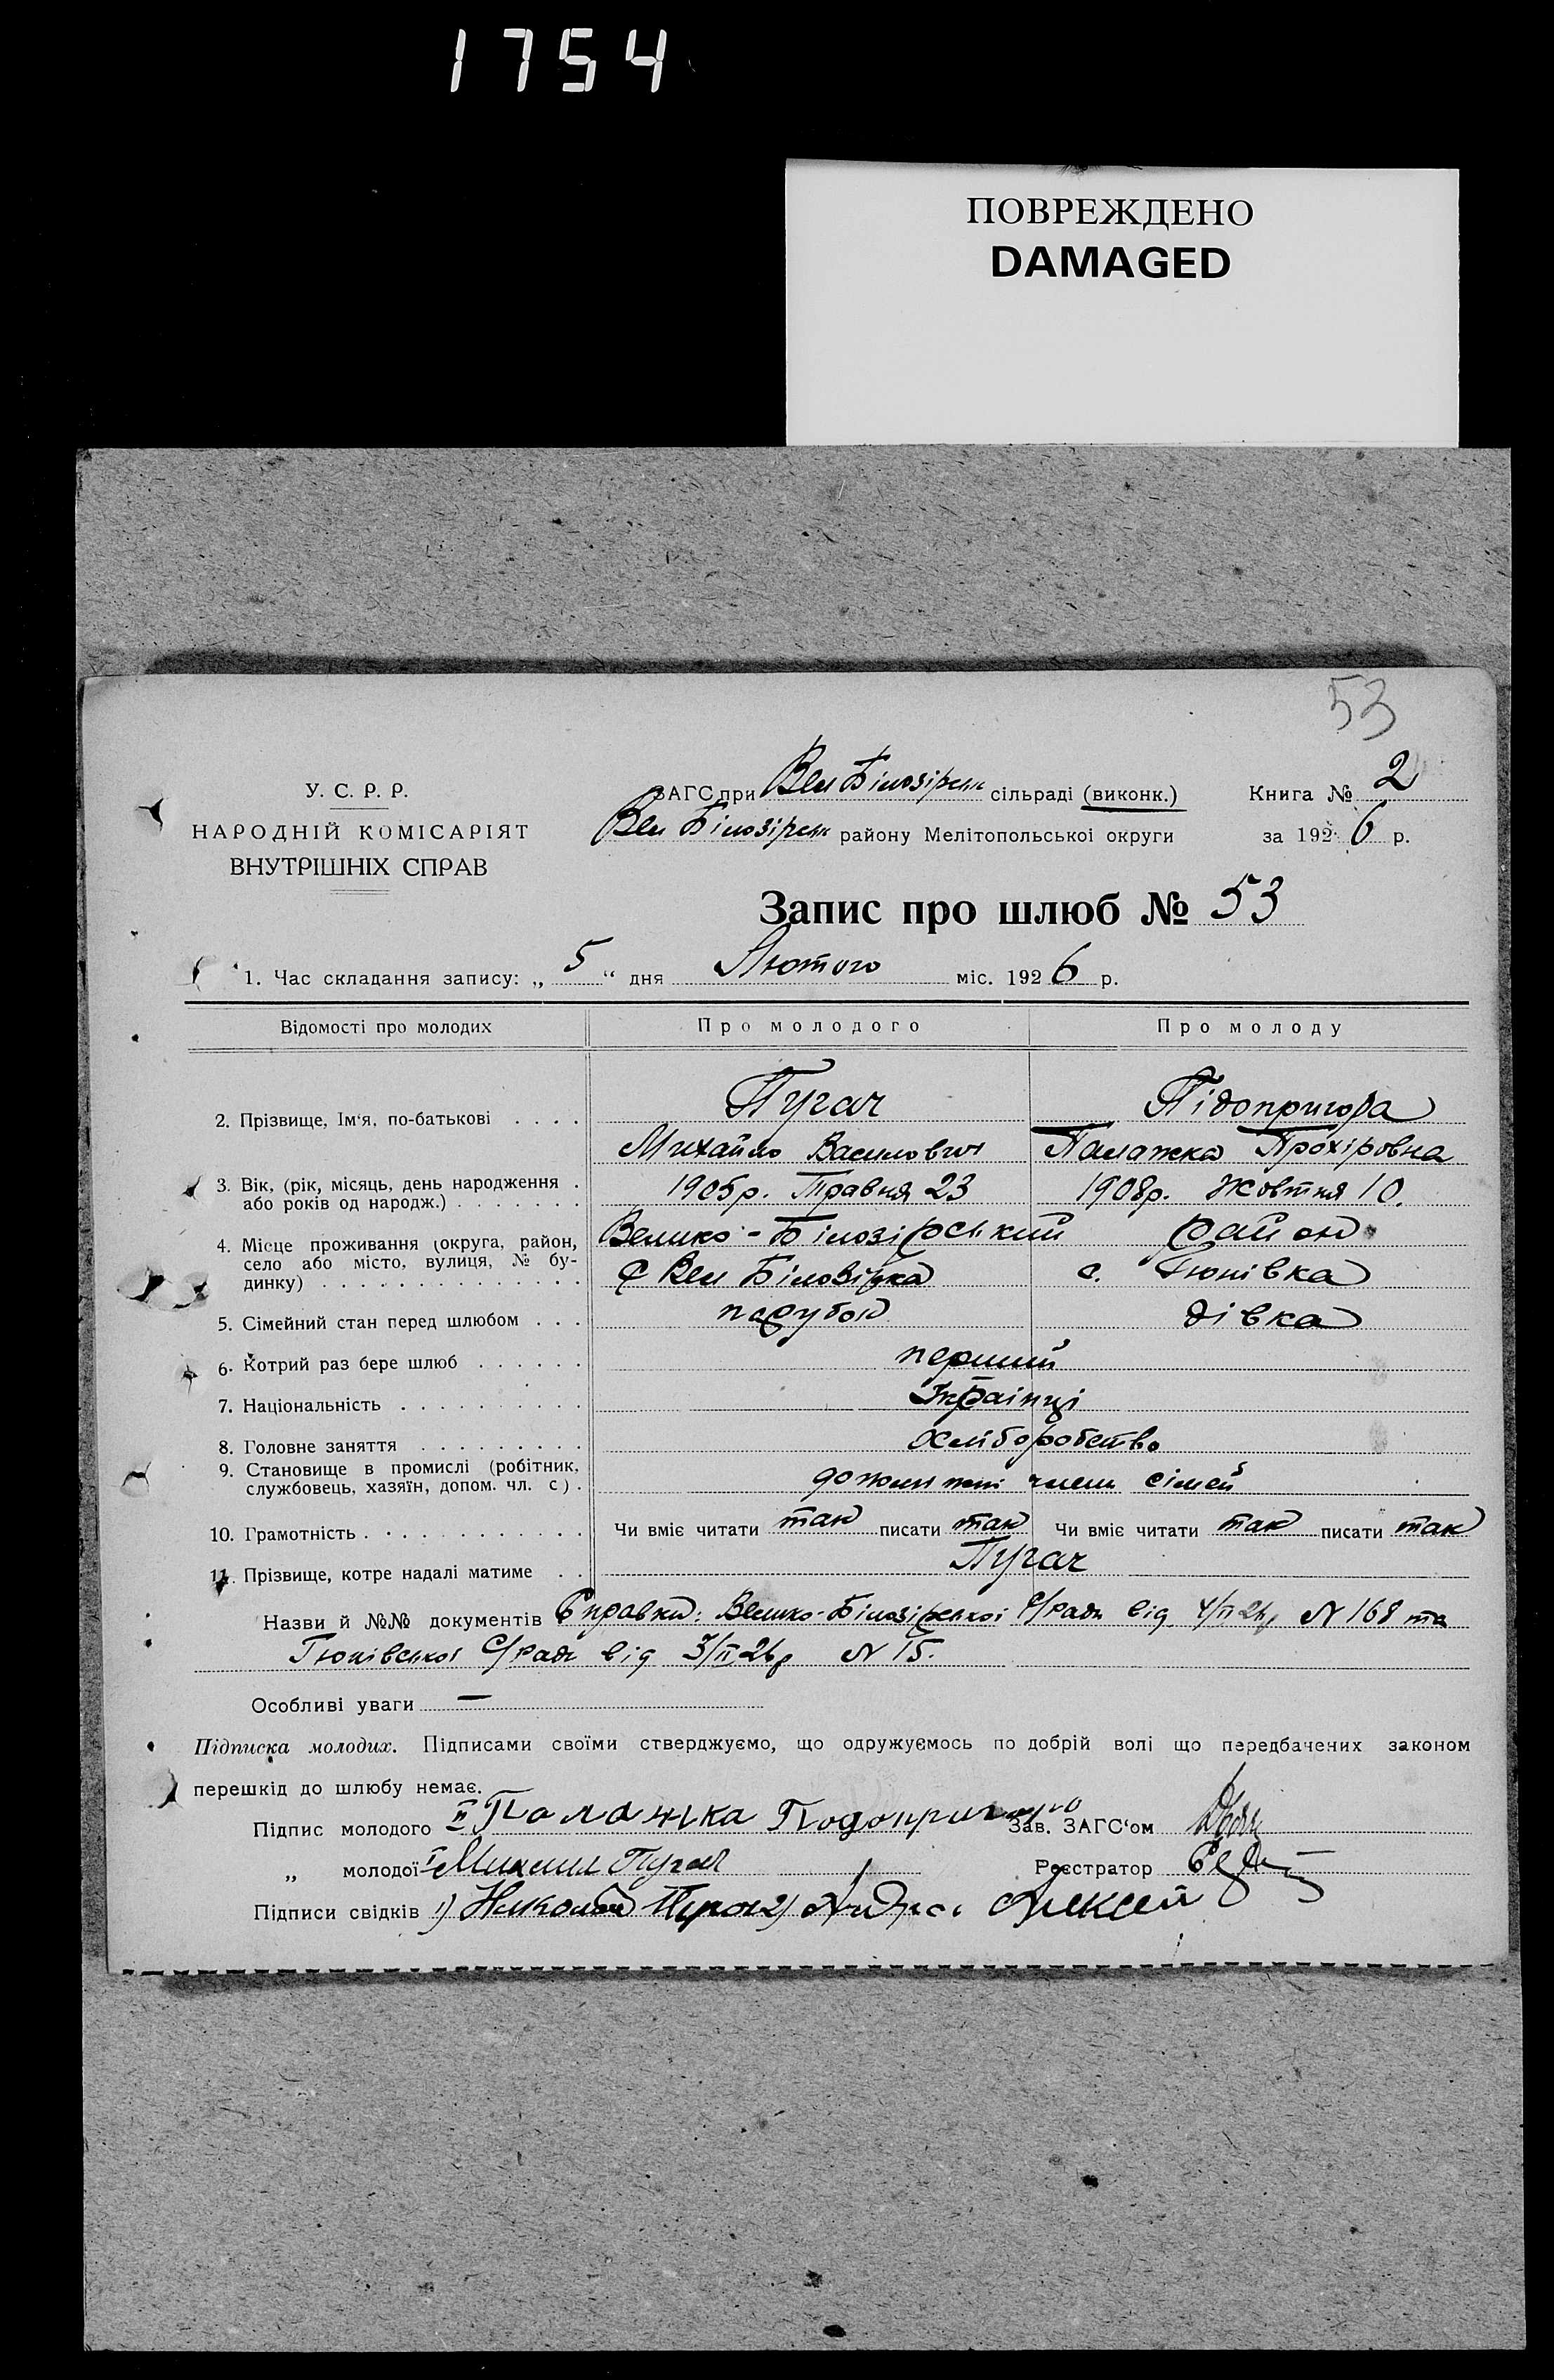 1754
ПОВРЕЖДЕНО
DAMAGED
53
У. С. Р. Р.
НАРОДНІЙ КОМІСАРІЯТ
ВНУТРІШНІХ СПРАВ
ЗАГС при Вел Білозірськ сільраді (виконк.)
Вел Білозірськ району Мелітопольської округи
Книга № 2
за 1926 р.
Запис про шлюб № 53
1. Час складання запису: „ 5 “ дня Лютого міс. 1926 р.
Відомості про молодих Про молодого Про молоду
2. Прізвище, Ім‘я, по-батькові . . . . Пугач Підопригора
Михайло Василович Палажка Прохіровна
3. Вік, (рік, місяць, день народження . 1905р. Травня 23 1908р. Жовтня 10.
або років од народж.) . . . . . . .
4. Місце проживання (округа, район, Велико-Білозірський район
село або місто, вулиця, № бу-
динку) . . . . . . . . . . . . . . с Вел Білозірка с. Гюнівка
5. Сімейний стан перед шлюбом . . . парубок дівка
6. Котрий раз бере шлюб . . . . . . перший
7. Національність . . . . . . . . . . Українці
8. Головне заняття . . . . . . . . . хліборобство
9. Становище в промислі (робітник,
службовець, хазяїн, допом. чл. с) . член сімей
10. Грамотність . . . . . . . . . . . . Чи вміє читати так писати так Чи вміє читати так писати так
11. Прізвище, котре надалі матиме . . Пугач
Назви й №№ документів Справки: Велико-Білозірської С/ради від 4/II 26р N 168 та
Гюнівської С/ради від 3/II 26р N 15.
Особливі уваги —
Підписка молодих. Підписами своїми стверджуємо, що одружуємось по добрій волі що передбачених законом
перешкід до шлюбу немає.
Підпис молодого II Паламжка Подопригора Зав. ЗАГС‘ом
„ молодої I Михаил Пугач Реєстратор
Підписи свідків 1) Николай 2) Алексей